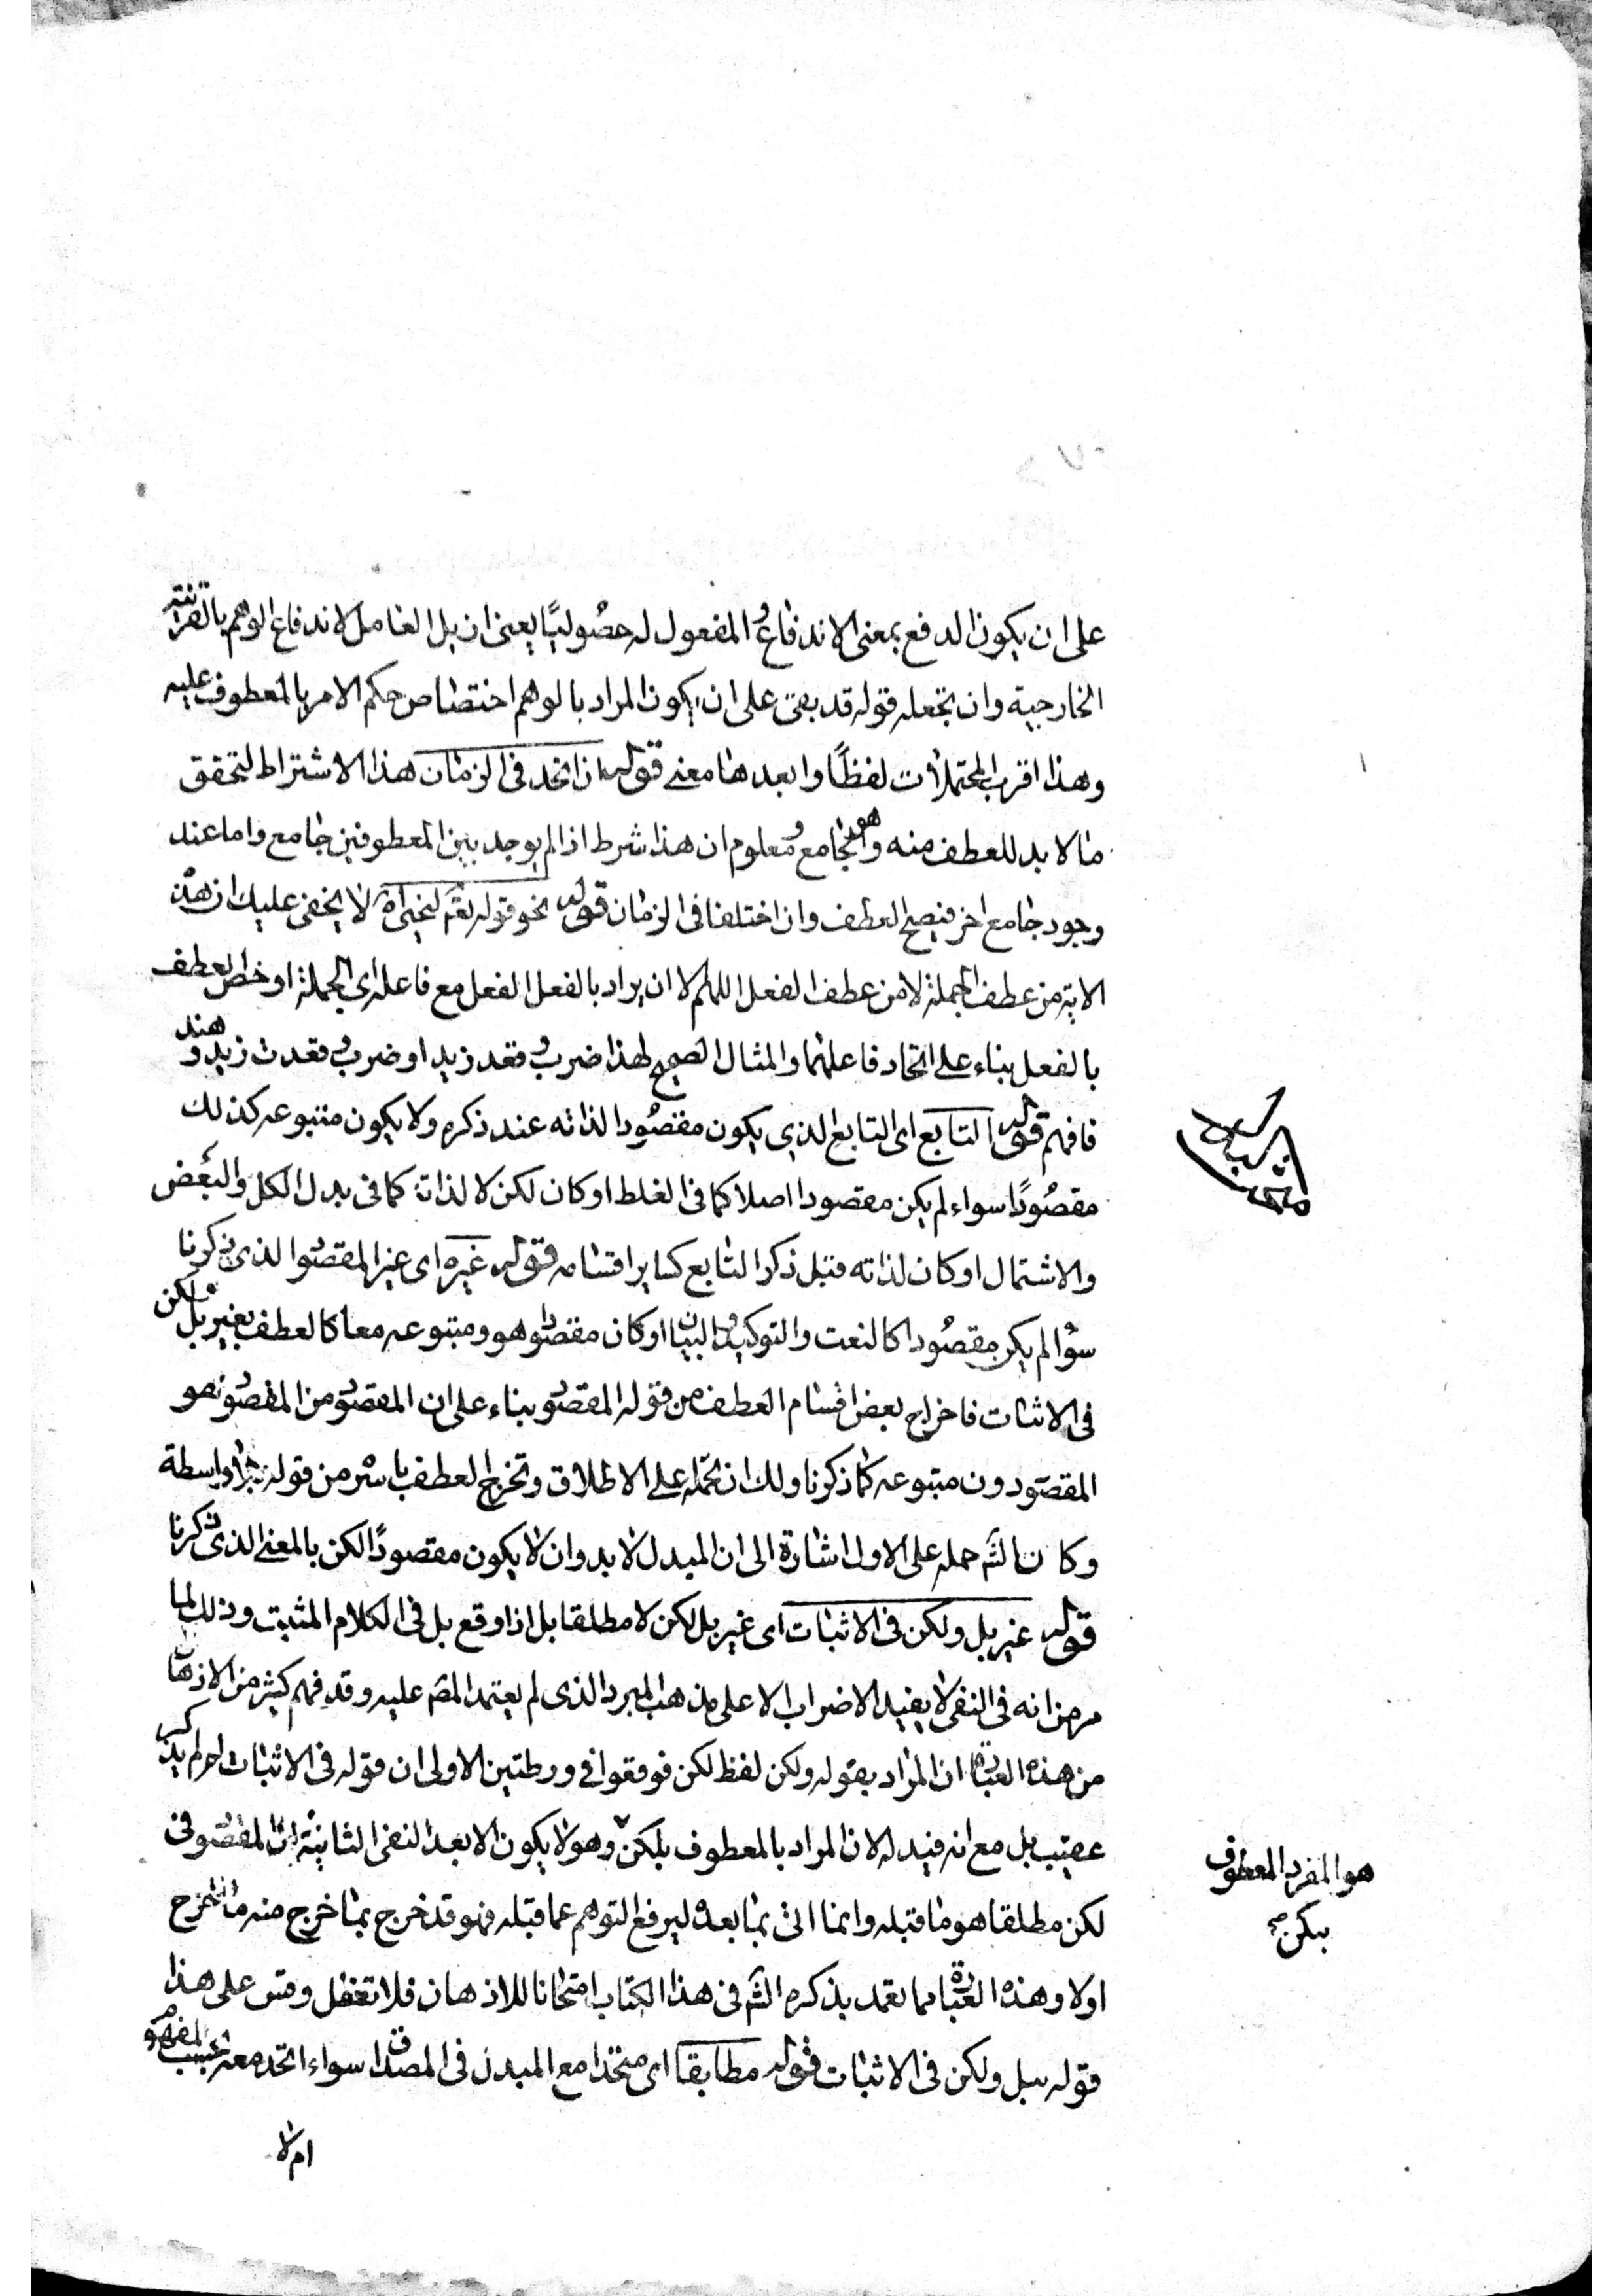 على ان يكون الدفع بمعنى الاندفاع و المفعول له حصوليًا يعنى ان بل العامل لاندفاع الوهم بالقرائنة
الخارجية وان تجعله قوله قد بقى على ان يكون المراد بالوهم اختصاص حكم الامر بالمعطوف عليه
وهذا اقرب المحتملات لفظًا وابعدها معنى قوله ان اتحد فى الزمان هذا الاشتراط لتحقق
ما لابد للعطف منه وهو الجامع و معلوم ان هذا شرط اذا لم يوجد بين المعطوفين جامع واما عند
وجود جامع اخر فيصح العطف وان اختلفا فى الزمان قوله نحو قوله تعم لنحيى به لا يخفى عليك ان هذه
الاية من عطف الجملة لا من عطف الفعل اللهم الا ان يراد بالفعل الفعل مع فاعله اى الجملة او خص العطف
بالفعل بناء على اتحاد فاعلهما والمثال الصحيح لهذا ضرب و قعد زيد او ضرب و قعدت زيد و هند
فافهم قوله التابع اى التابع الذى يكون مقصودا لذاته عند ذكره ولا يكون متبوعه كذلك
مقصودًا سواء لم يكن مقصودا اصلا كما فى الغلط او كان لكن لا لذاته كما فى بدل الكل والبعض
والاشتمال او كان لذاته قبل ذكر التابع كساير اقسامه قوله غيره اى غير المقصود الذى ذكرنا
سواء لم يكن مقصودا كالنعت والتوكيد والبيان او كان مقصودا هو ومتبوعه معا كالعطف بغير بل و لكن
فى الاثبات فاخراج بعض اقسام العطف من قوله المقصود بناء على ان المقصود من المقصود هو
المقصود دون متبوعه كما ذكرنا ولك ان تحمله على الاطلاق وتخرج العطف باسره من قوله بلا واسطة
وكان الشم حمله على الاول اشارة الى ان المبدل لابد وان لا يكون مقصودًا لكن بالمعنى الذى ذكرنا
قوله غير بل ولكن فى الاثبات اى غير بل لكن لا مطلقا بل اذا وقع بل فى الكلام المثبت وذلك لما
مر من انه فى النفى لا يفيد الاضراب الا على مذهب المبرد الذى لم يعتمد المصم عليه وقد فهم كثير من الاذهان
من هذه العبارة ان المراد بقوله ولكن لفظ لكن فوقعوا فى ورطتين الاولى ان قوله فى الاثبات لم لم يذكر
عقيب بل مع انه قيد له لان المراد بالمعطوف بلكن وهو لا يكون الا بعد النفى الثانية ان المقصود فى
لكن مطلقا هو ما قبله وانما اتى بما بعده ليرفع التوهم عما قبله فهو قد خرج بما خرج منه ما خرج
اولا وهذه العبارة مما تعمد بذكره الشم فى هذا الكتاب امتحانا للاذهان فلا تغفل وقس على هذا
قوله ببل ولكن فى الاثبات قوله مطابقا اى متحدا مع المبدل فى المصداق سواء اتحد معه بحسب المفهوم
ام لا
هو المفرد المعطوف
بلكن صح